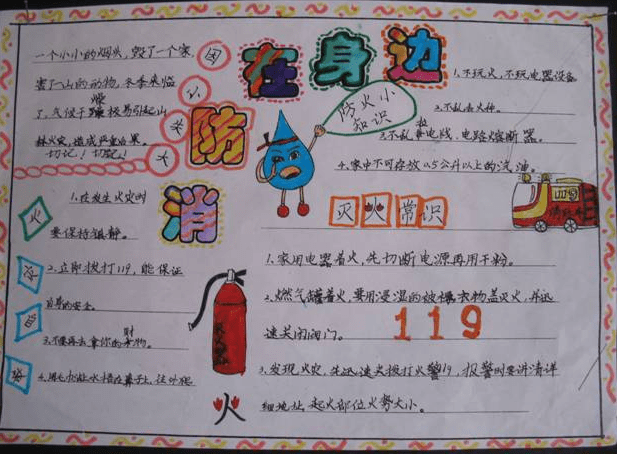 消防在身边
一个小小的烟头，毁了一个家，
害了一山的动物，冬季来临
了，气候干燥极易引起山
林火灾，造成严重后果。
切记！切记！
防火小
知识
1.不玩火，不玩电器设备
2.不乱丢火种。
3.不乱私电线、电路熔断器。
4.家中不可存放0.5公升以上的汽油。
1.在发生火灾时
要保持镇静。
2.立即拨打119，能保证
自身的安全。
3.不要再去拿你的财物。
火
灭火常识
1.家用电器着火，先切断电源再用干粉。
2.燃气罐着火，要用浸湿的被褥衣物盖灭火，并迅
速关闭阀门。
119
3.发现火灾，先迅速火拨打火警119，报警时要讲清详
细地址，起火部位火势大小。
火